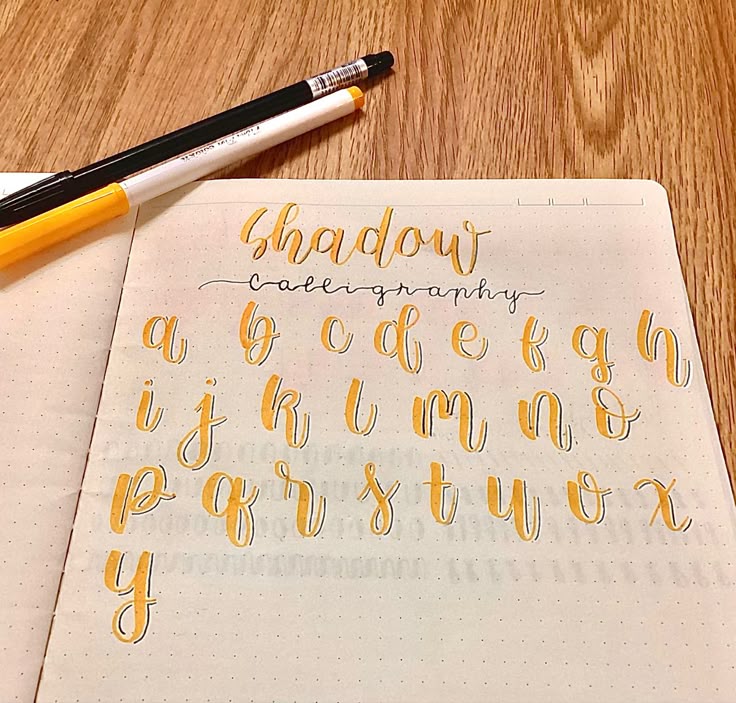 shadow
calligraphy
a b c d e f g h
i j k l m n o
p q r s t u v x
y